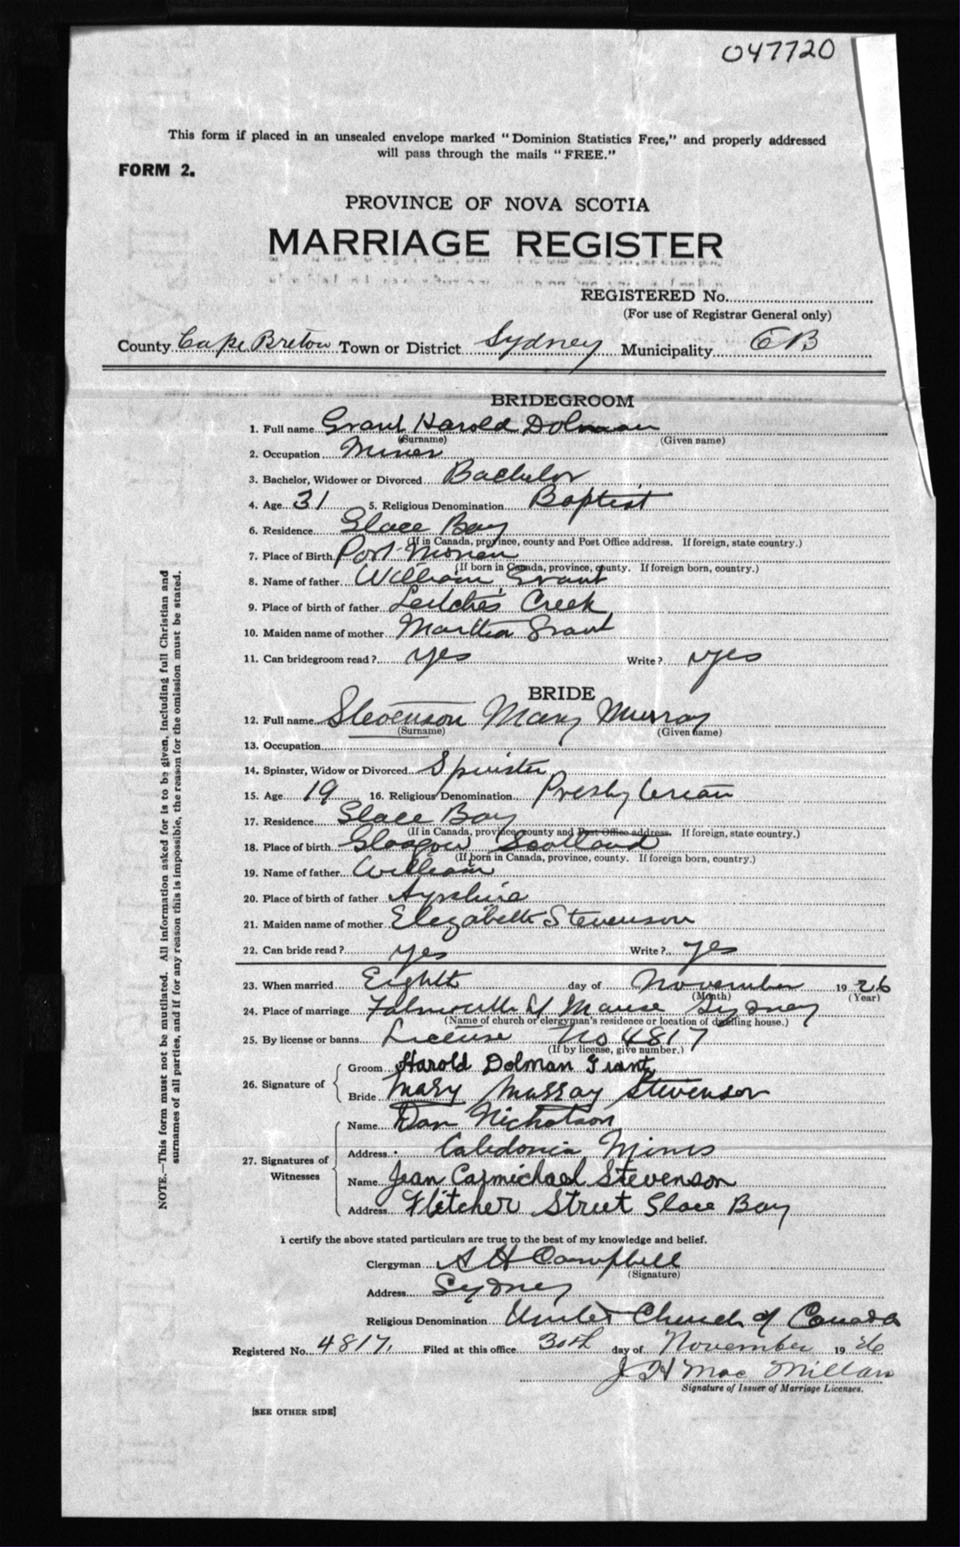 047720
This form if placed in an unsealed envelope marked "Dominion Statistics Free," and properly addressed
will pass through the mails "FREE."
FORM 2.
PROVINCE OF NOVA SCOTIA
MARRIAGE REGISTER
REGISTERED No.
(For use of Registrar General only)
County Cape Breton Town or District Sydney Municipality CB
BRIDEGROOM
1. Full name Grant Harold Dolman
(Surname) (Given name)
2. Occupation Miner
3. Bachelor, Widower or Divorced Bachelor
4. Age 31 5. Religious Denomination Baptist
6. Residence Glace Bay
(If in Canada, province, county and Post Office address. If foreign, state country.)
7. Place of Birth Port Morien
(If born in Canada, province, county. If foreign born, country.)
8. Name of father William Grant
9. Place of birth of father Leitches Creek
10. Maiden name of mother Martha Grant
11. Can bridegroom read? yes Write? yes
BRIDE
12. Full name Stevenson Mary Murray
(Surname) (Given name)
13. Occupation
14. Spinster, Widow or Divorced Spinster
15. Age 19 16. Religious Denomination Presbyterian
17. Residence Glace Bay
(If in Canada, province county and Post Office address. If foreign, state country.)
18. Place of birth Glasgow Scotland
(If born in Canada, province, county. If foreign born, country.)
19. Name of father William
20. Place of birth of father Ayrshire
21. Maiden name of mother Elezabeth Stevenson
22. Can bride read? yes Write? yes
23. When married Eighth day of November 1926
(Month) (Year)
24. Place of marriage Falmouth St Manse Sydney
(Name of church or clergyman's residence or location of dwelling house.)
25. By license or banns License No 4817
(If by license, give number.)
26. Signature of Groom Harold Dolman Grant
Bride Mary Murray Stevenson
27. Signatures of Witnesses
Name Dan Nicholson
Address Caledonia Mines
Name Jean Carmichael Stevenson
Address Fletcher Street Glace Bay
I certify the above stated particulars are true to the best of my knowledge and belief.
Clergyman A H Campbell
(Signature)
Address Sydney
Religious Denomination United Church of Canada
Registered No. 4817 Filed at this office 30th day of November 1926
J H MacMillan
Signature of Issuer of Marriage Licenses.
[SEE OTHER SIDE]
NOTE.—This form must not be mutilated. All information asked for is to be given, including full Christian and
surnames of all parties, and if for any reason this is impossible, the reason for the omission must be stated.